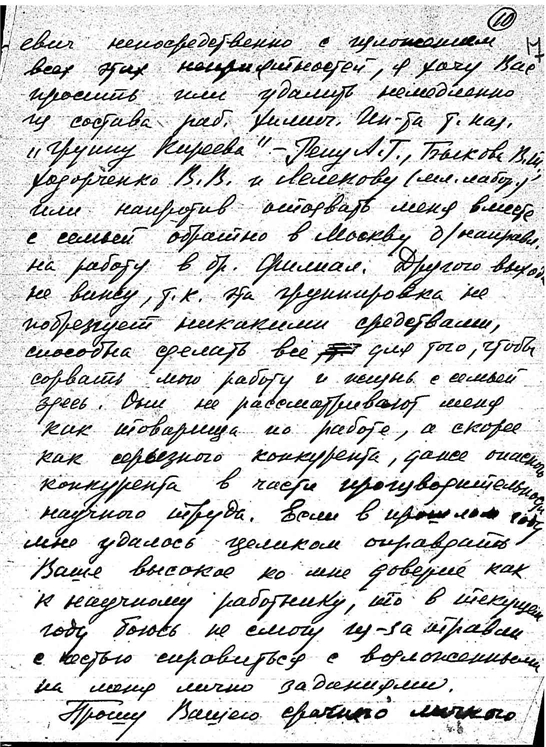 10
евич непосредственно с изложением
всех этих неприятностей, я хочу Вас
просить или удалить немедленно
из состава раб. Химич. Ин-та т. наз.
"группу Киреева" – Пешу А.Г., Быкова В.Ш
Ходорченко В.В. и Лелекову (мл. лабор.)
или напротив отозвать меня вместе
с семьей обратно в Москву д/направл.
на работу в др. Филиал. Другого выхода
не вижу, т.к. эта группировка не
побрезгует никакими средствами,
способна сделать все для того, чтобы
сорвать мою работу и жизнь с семьей
здесь. Они не рассматривают меня
как товарища по работе, а скорее
как серьезного конкурента, даже опасного
конкурента в части производительности
научного труда. Если в прошлом году
мне удалось целиком оправдать
Ваше высокое ко мне доверие как
к научному работнику, то в текущем
году боюсь не смогу из-за травли
с честью справиться с возложенными
на меня лично заданиями.
Прошу Вашего срочного личного